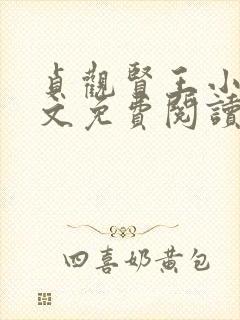 貞觀賢王小
文免費閱讀
四喜奶黃包